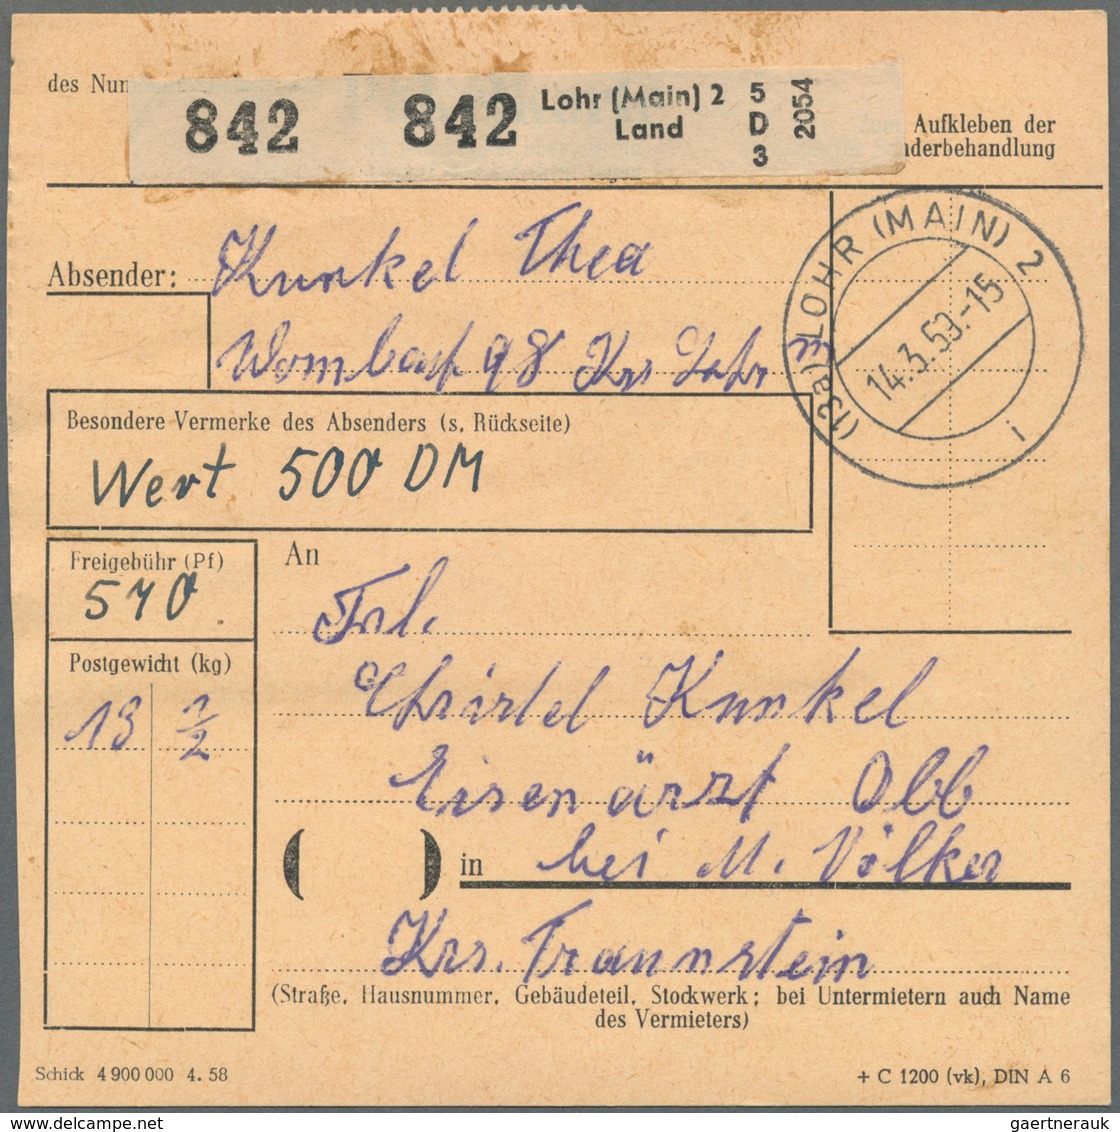 des Num
842 842 Lohr (Main) 2 5
Land D
3
2054
Aufkleben der
nderbehandlung
Absender: Kunkel Thea
Wombach 98 Krs Lohr
(13a) LOHR (MAIN) 2
14.3.59.-15
i
Besondere Vermerke des Absenders (s. Rückseite)
Wert 500 DM
Freigebühr (Pf)
570
Postgewicht (kg)
18 1/2
An
Frl.
Christel Kunkel
Eisenärzt Obb
in bei M. Völker
Krs. Traunstein
(Straße, Hausnummer, Gebäudeteil, Stockwerk; bei Untermietern auch Name
des Vermieters)
Schick 4 900 000 4. 58
+ C 1200 (vk), DIN A 6
gaertnerauk